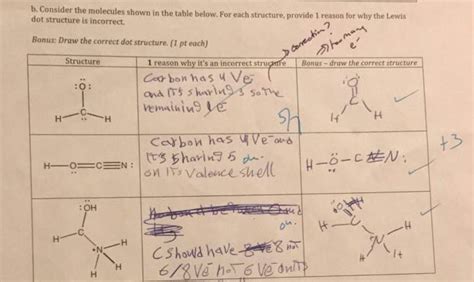 b. Consider the molecules shown in the table below. For each structure, provide 1 reason for why the Lewis
dot structure is incorrect.
Bonus: Draw the correct dot structure. (1 pt each)
Structure 1 reason why it's an incorrect structure Bonus – draw the correct structure
:O:
C
H H
Carbon has 4 Ve
and its sharing 3 so the
remaining 1e
O
C
H H
H—O=C≡N:
Carbon has 4 Ve- and
its sharing 5
on its valence shell
H-O-C≡N:
+3
:OH
H C
N H
H
C should have 8 not
6/8 Ve not 6 Ve
H C
N H
H